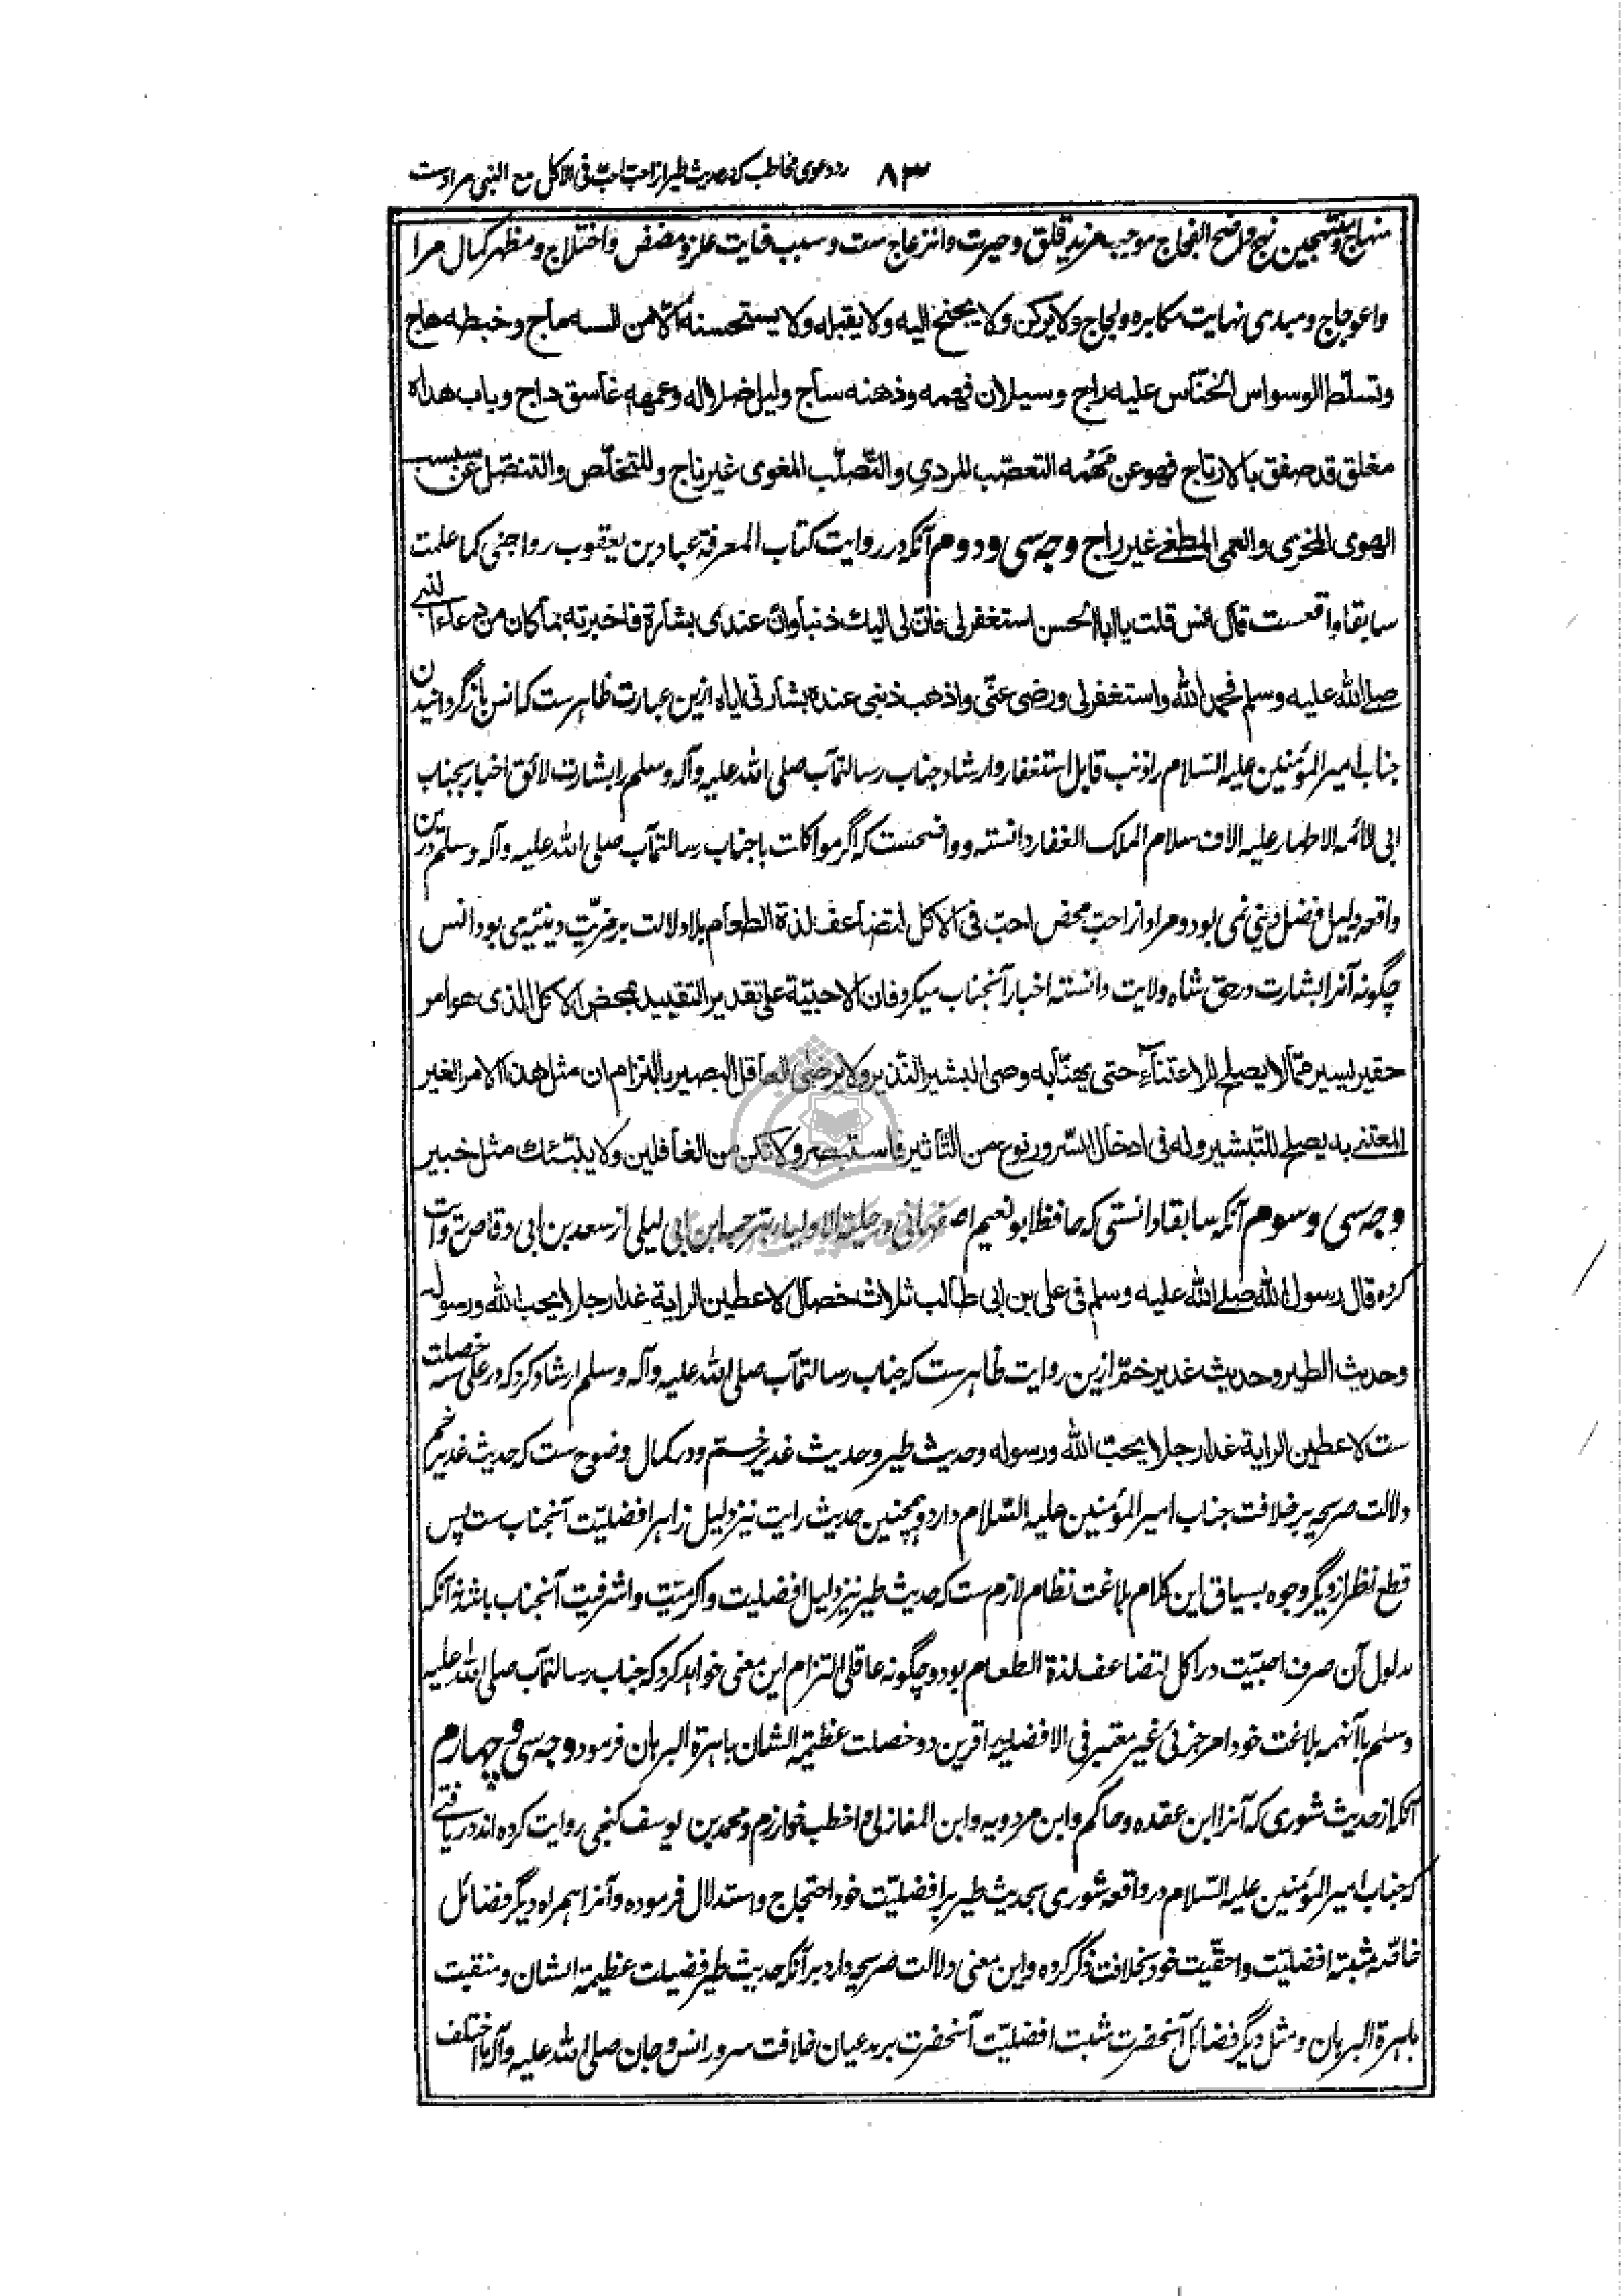 ۸۳ رد دعوی مخاطب که در حدیث طیر از احب احبّ فی الاکل مع النبی مراد ست
منهاج و منتهجین نهج واضح الفجاج موجب مزید قلق و حیرت و انزعاج ست و سبب غایت علز و مضض و اختلاج و مظهر کمال مرا
و اعوجاج و مبدی نهایت مکابره و لجاج ولا یرکن ولا یجنح الیه ولا یقبله ولا یستحسنه الّا من السه ماج و خبطه هاج
و تسلّط الوسواس الخنّاس علیه راج و سیلان فهمه و ذهنه ساج ولیل ضلاله و عمهه غاسق داج و باب هداه
مغلق قد صفق بالارتاج فهو عن مهمه التعصّب المردی و التصلّب المغوی غیر ناج و للتخلّص و التنصّل عن سبسب
الهوی المخزی و العمی المطغی غیر راج وجه سی و دوم آنکه در روایت کتاب المعرفة عباد بن یعقوب رواجنی کما علمت
سابقا واقعست قال انس قلت یا ابا الحسن استغفر لی فانّ لی الیك ذنبا وانّ عندی بشارة فاخبرته بما کان من دعاء النبی
صلی الله علیه وسلم فحمد الله و استغفر لی و رضی عنّی و اذهب ذنبی عنده بشارتی ایاه ازین عبارت ظاهرست که انس باز گردانیدن
جناب امیر المؤمنین علیه السّلام را ذنب قابل استغفار و ارشاد جناب رسالتمآب صلی الله علیه وآله وسلم را بشارت لائق اخبار بجناب
ابی الائمه الاطهار علیه آلاف سلام الملک الغفار دانسته و واضحست که اگر مواکلت با جناب رسالتمآب صلی الله علیه وآله وسلم درین
واقعه دلیل فضل دینی نمی بود و مراد از احبّ محض احبّ فی الاکل لتضاعف لذة الطعام بلا دلالت بر مزیّت دینیّه می بود انس
چگونه آنرا بشارت در حق شاه ولایت دانسته اخبار آنجناب میکرد فان الاحبّیة علی تقدیر التقیید بمحض الاکل الذی هو امر
حقیر یسیر ممّا لا یصلح للاعتناء حتی یهنّأ به وصی البشیر النّذیر ولا یرضی العاقل البصیر بالتزام ان مثل هذا الامر الغیر
المعتنی به یصلح للتبشیر وله فی ادخال السّرور نوع من التاثیر فاستبصر ولا تکن من الغافلین ولا ینبّئك مثل خبیر
وجه سی و سوم آنکه سابقا دانستی که حافظ ابو نعیم اصفهانی در حلیة الاولیا بترجمه ابن ابی لیلی از سعد بن ابی وقاص روایت
کرده قال رسول الله صلی الله علیه وسلم فی علی بن ابی طالب ثلاث خصال لاعطین الرایة غدا رجلا یحب الله و رسوله
و حدیث الطیر و حدیث غدیر خمّ ازین روایت ظاهرست که جناب رسالتمآب صلی الله علیه وآله وسلم ارشاد کرد که در علی سه خصلت
ست لاعطین الرایة غدا رجلا یحبّ الله و رسوله و حدیث طیر و حدیث غدیر خم و در کمال وضوح ست که حدیث غدیر خم
دلالت صریحه بر خلافت جناب امیر المؤمنین علیه السّلام دارد و همچنین حدیث رایت نیز دلیل زاهر افضلیّت آنجناب ست پس
قطع نظر از دیگر وجوه بسیاق این کلام بلاغت نظام لازم ست که حدیث طیر نیز دلیل افضلیت و اکرمیّت و اشرفیت آنجناب باشد نه آنکه
مدلول آن صرف احبّیت در اکل لتضاعف لذة الطعام بود و چگونه عاقلی التزام این معنی خواهد کرد که جناب رسالتمآب صلی الله علیه
وسلم با آنهمه بلاغت خود امر جزئی غیر معتبر فی الافضلیه را قرین دو خصلت عظیمة الشان باهرة البرهان فرمود وجه سی و چهارم
آنکه از حدیث شوری که آنرا ابن عقده و حاکم و ابن مردویه و ابن المغازلی و اخطب خوارزم و محمد بن یوسف کنجی روایت کرده اند دریافتی
که جناب امیر المؤمنین علیه السّلام در واقعه شوری بحدیث طیر بر افضلیّت خود احتجاج و استدلال فرموده و آنرا همراه دیگر فضائل
خاصّه مثبته افضلیّت و احقّیت خود بخلافت ذکر کرده و این معنی دلالت صریحه دارد بر آنکه حدیث طیر فضیلت عظیمة الشان و منقبت
باهرة البرهان و مثل دیگر فضائل آنحضرت مثبت افضلیّت آنحضرت بر مدعیان خلافت سرور انس و جان صلی الله علیه وآله ما اختلف